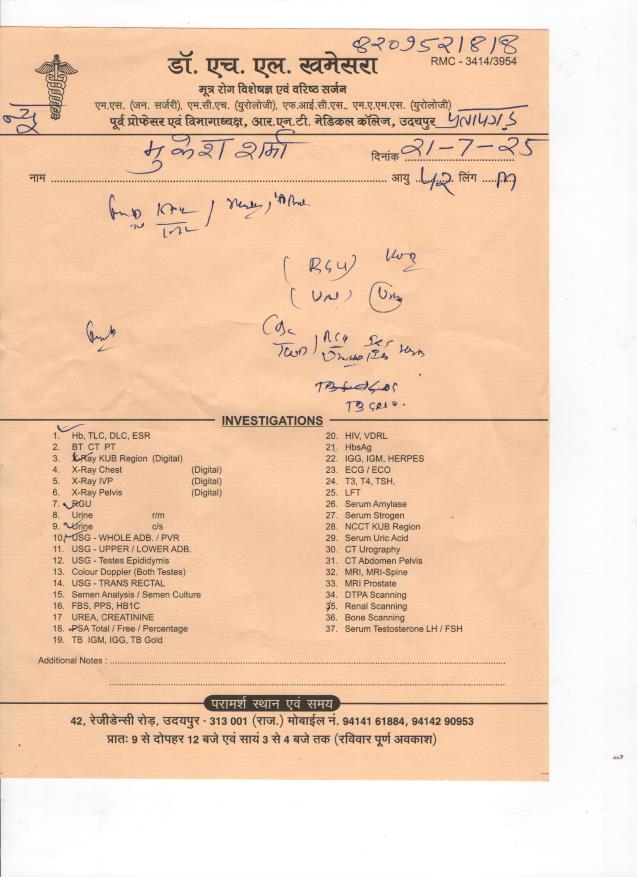 8209521818
डॉ. एच. एल. खमेसरा
RMC - 3414/3954
मूत्र रोग विशेषज्ञ एवं वरिष्ठ सर्जन
एम.एस. (जन. सर्जरी), एम.सी.एच. (युरोलोजी), एफ.आई.सी.एस., एम.ए.एम.एस. (युरोलोजी)
न्यू
पूर्व प्रोफेसर एवं विभागाध्यक्ष, आर.एन.टी. मेडिकल कॉलेज, उदयपुर प्रतापगढ़
मुकेश शर्मा
दिनांक 21-7-25
नाम आयु 42 लिंग M
(RGU) KUB
INVESTIGATIONS
1. Hb, TLC, DLC, ESR
2. BT CT PT
3. X-Ray KUB Region (Digital)
4. X-Ray Chest (Digital)
5. X-Ray IVP (Digital)
6. X-Ray Pelvis (Digital)
7. RGU
8. Urine r/m
9. Urine c/s
10. USG - WHOLE ADB. / PVR
11. USG - UPPER / LOWER ADB.
12. USG - Testes Epididymis
13. Colour Doppler (Both Testes)
14. USG - TRANS RECTAL
15. Semen Analysis / Semen Culture
16. FBS, PPS, HB1C
17 UREA, CREATININE
18. PSA Total / Free / Percentage
19. TB IGM, IGG, TB Gold
20. HIV, VDRL
21. HbsAg
22. IGG, IGM, HERPES
23. ECG / ECO
24. T3, T4, TSH,
25. LFT
26. Serum Amylase
27. Serum Strogen
28. NCCT KUB Region
29. Serum Uric Acid
30. CT Urography
31. CT Abdomen Pelvis
32. MRI, MRI-Spine
33. MRI Prostate
34. DTPA Scanning
35. Renal Scanning
36. Bone Scanning
37. Serum Testosterone LH / FSH
Additional Notes :
परामर्श स्थान एवं समय
42, रेजीडेन्सी रोड़, उदयपुर - 313 001 (राज.) मोबाईल नं. 94141 61884, 94142 90953
प्रातः 9 से दोपहर 12 बजे एवं सायं 3 से 4 बजे तक (रविवार पूर्ण अवकाश)